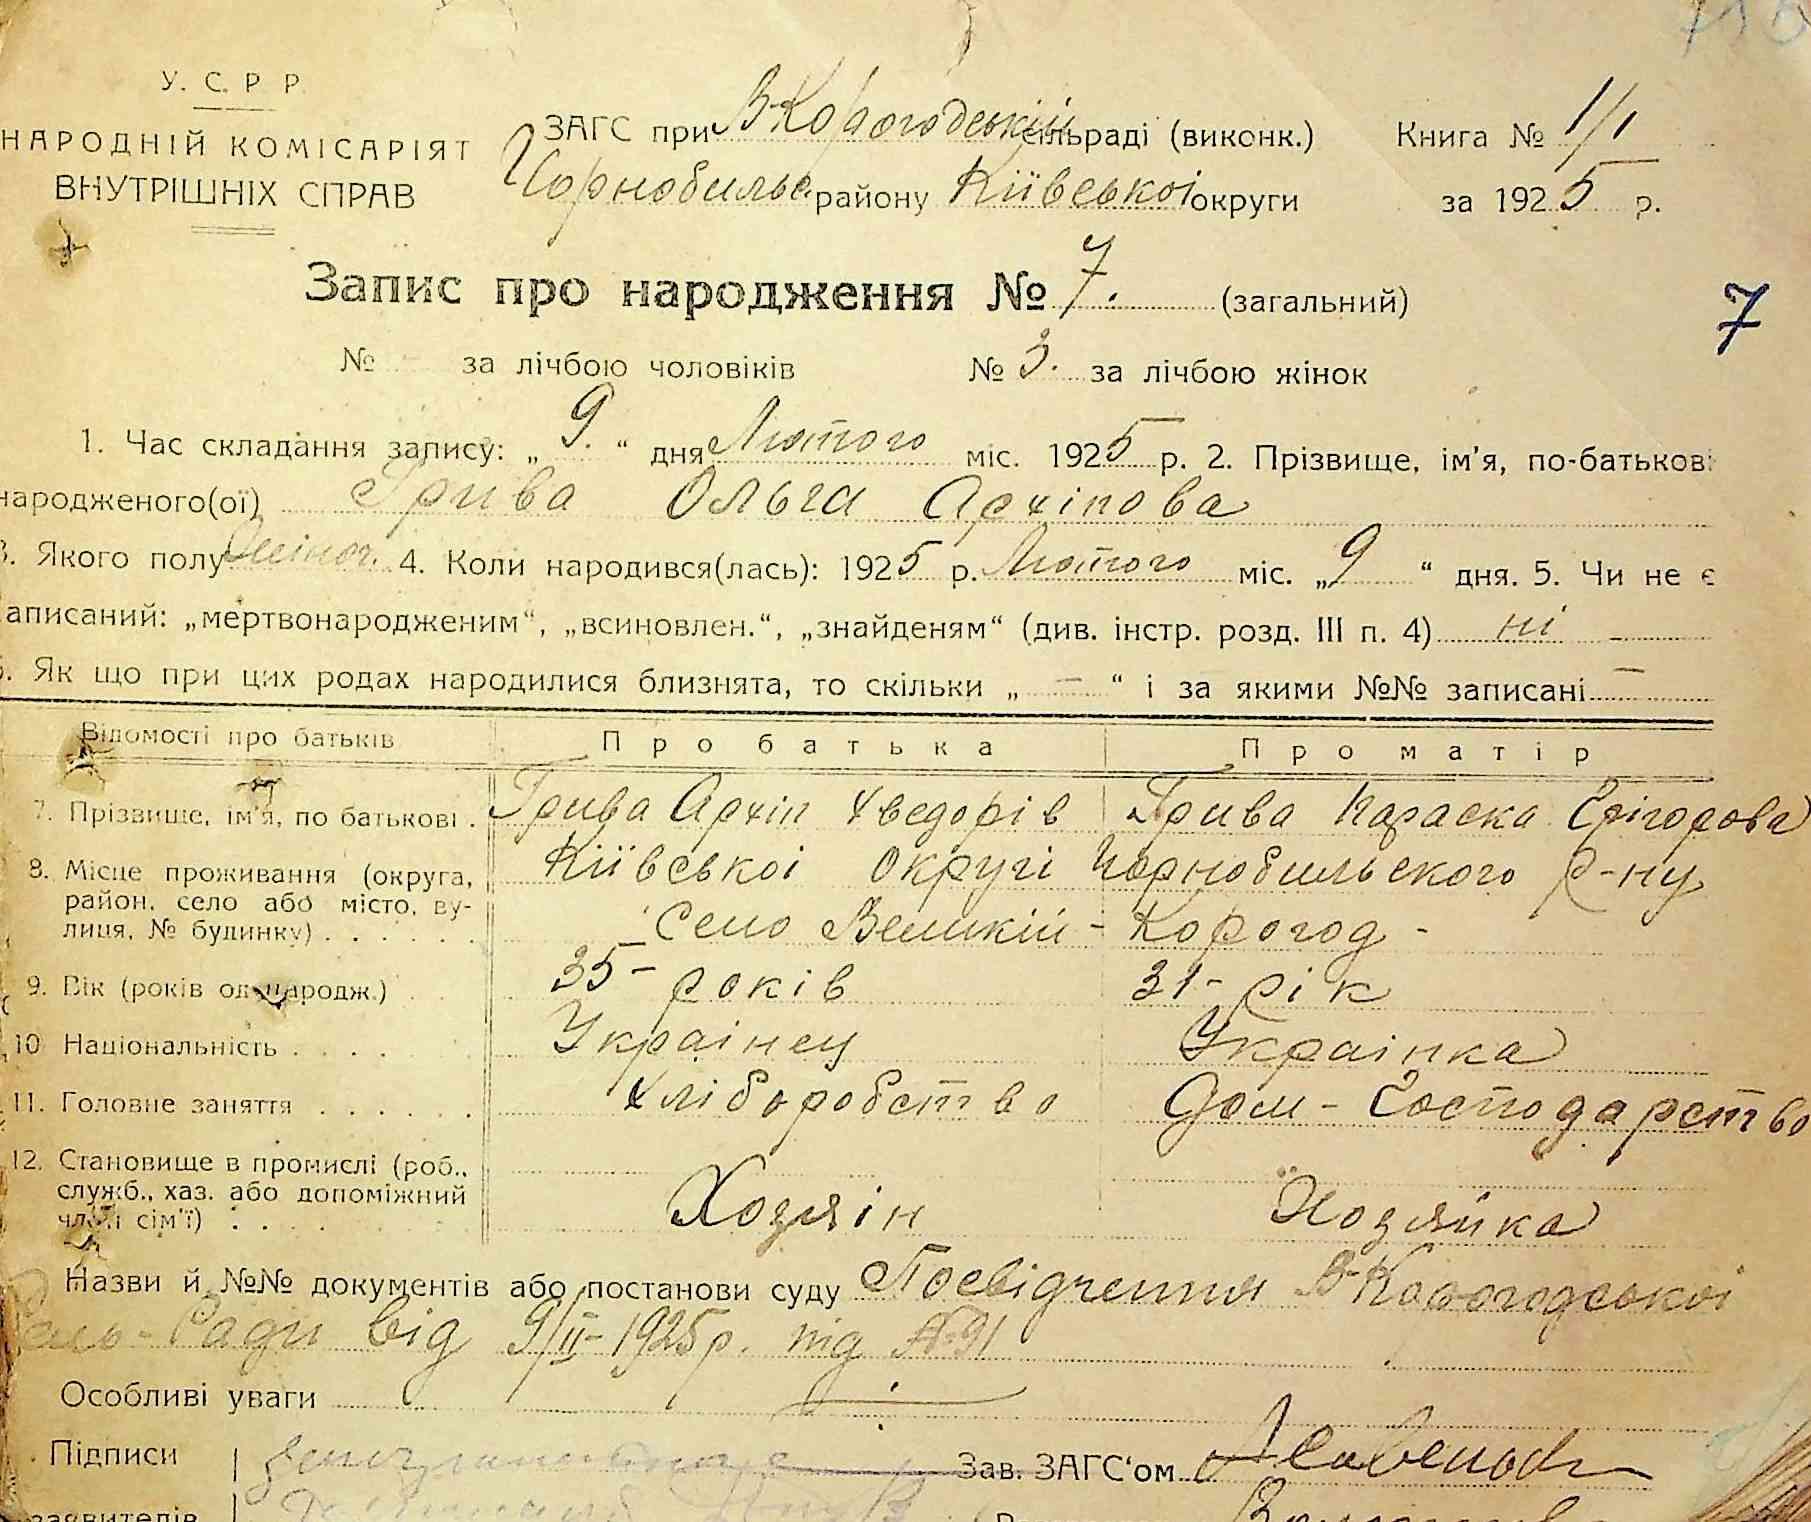 У. С. Р. Р.
НАРОДНІЙ КОМІСАРІЯТ
ВНУТРІШНІХ СПРАВ
ЗАГС при В-Корогодській сільраді (виконк.)
Чорнобильс. району Кіївськоі округи
Книга № 1/1
за 1925 р.
Запис про народження № 7. (загальний)
7
№ за лічбою чоловіків № 3. за лічбою жінок
1. Час складання запису: „9.“ дня Лютого міс. 1925 р. 2. Прізвище, ім'я, по-батькові
народженого(ої) Грива Ольга Архіпова
3. Якого полу жіноч. 4. Коли народився(лась): 1925 р. Лютого міс. „9“ дня. 5. Чи не є
аписаний: „мертвонародженим“, „всиновлен.“, „знайденям“ (див. інстр. розд. III п. 4) ні -
6. Як що при цих родах народилися близнята, то скільки „ — “ і за якими №№ записані —
Відомості про батьків Про батька Про матір
7. Прізвище, ім'я, по батькові . Грива Архіп Хведорів Грива Параска Грігорова
8. Місце проживання (округа, Кіївськоі округі Чорнобильского р-ну
район, село або місто, ву-
лиця, № будинку) . . . . . . Село Великій - Корогод -
9. Вік (років од народж.) 35 - років 31 - рік
10 Національність . . . . Украінец Украінка
11. Головне заняття . . . . . . Хліборобство Дом - Господарство
12. Становище в промислі (роб.,
служб., хаз. або допоміжний Хозяін Хозяйка
член сім'ї) . . .
Назви й №№ документів або постанови суду Посвідчення В-Корогодськоі
Сіль-Ради від 9/II-1925 р. під №91
Особливі уваги —
Підписи Зав. ЗАГС'ом
заявителів